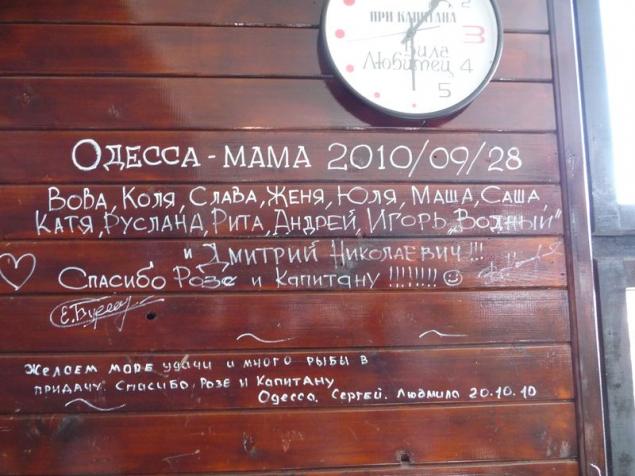 2
ПРИ КАПИТАНА
3
Вила
Любитец 4
5
ОДЕССА - МАМА 2010/09/28
ВОВА, КОЛЯ, СЛАВА, ЖЕНЯ, ЮЛЯ, МАША, САША,
КАТЯ, РУСЛАНА, РИТА, АНДРЕЙ, ИГОРЬ „ВОДНЫЙ"
и ДМИТРИЙ НИКОЛАЕВИЧ!!!
СПАСИБО РОЗЕ И КАПИТАНУ !!!!!!!!
Желаем море удачи и много рыбы в
придачу. Спасибо Розе и Капитану
Одесса. Сергей. Людмила 20.10.10